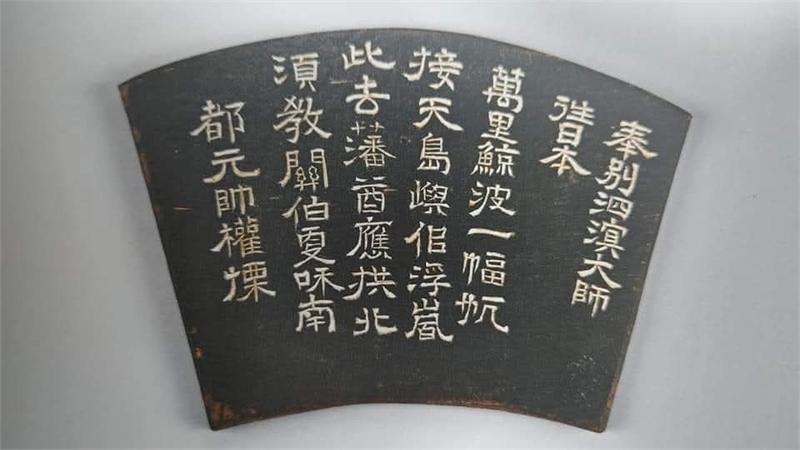 奉別泗溟大師
往日本
萬里鯨波一幅帆
接天島嶼但浮嵐
此去藩酋應拱北
須敎關伯更咊南
都元帥權慄